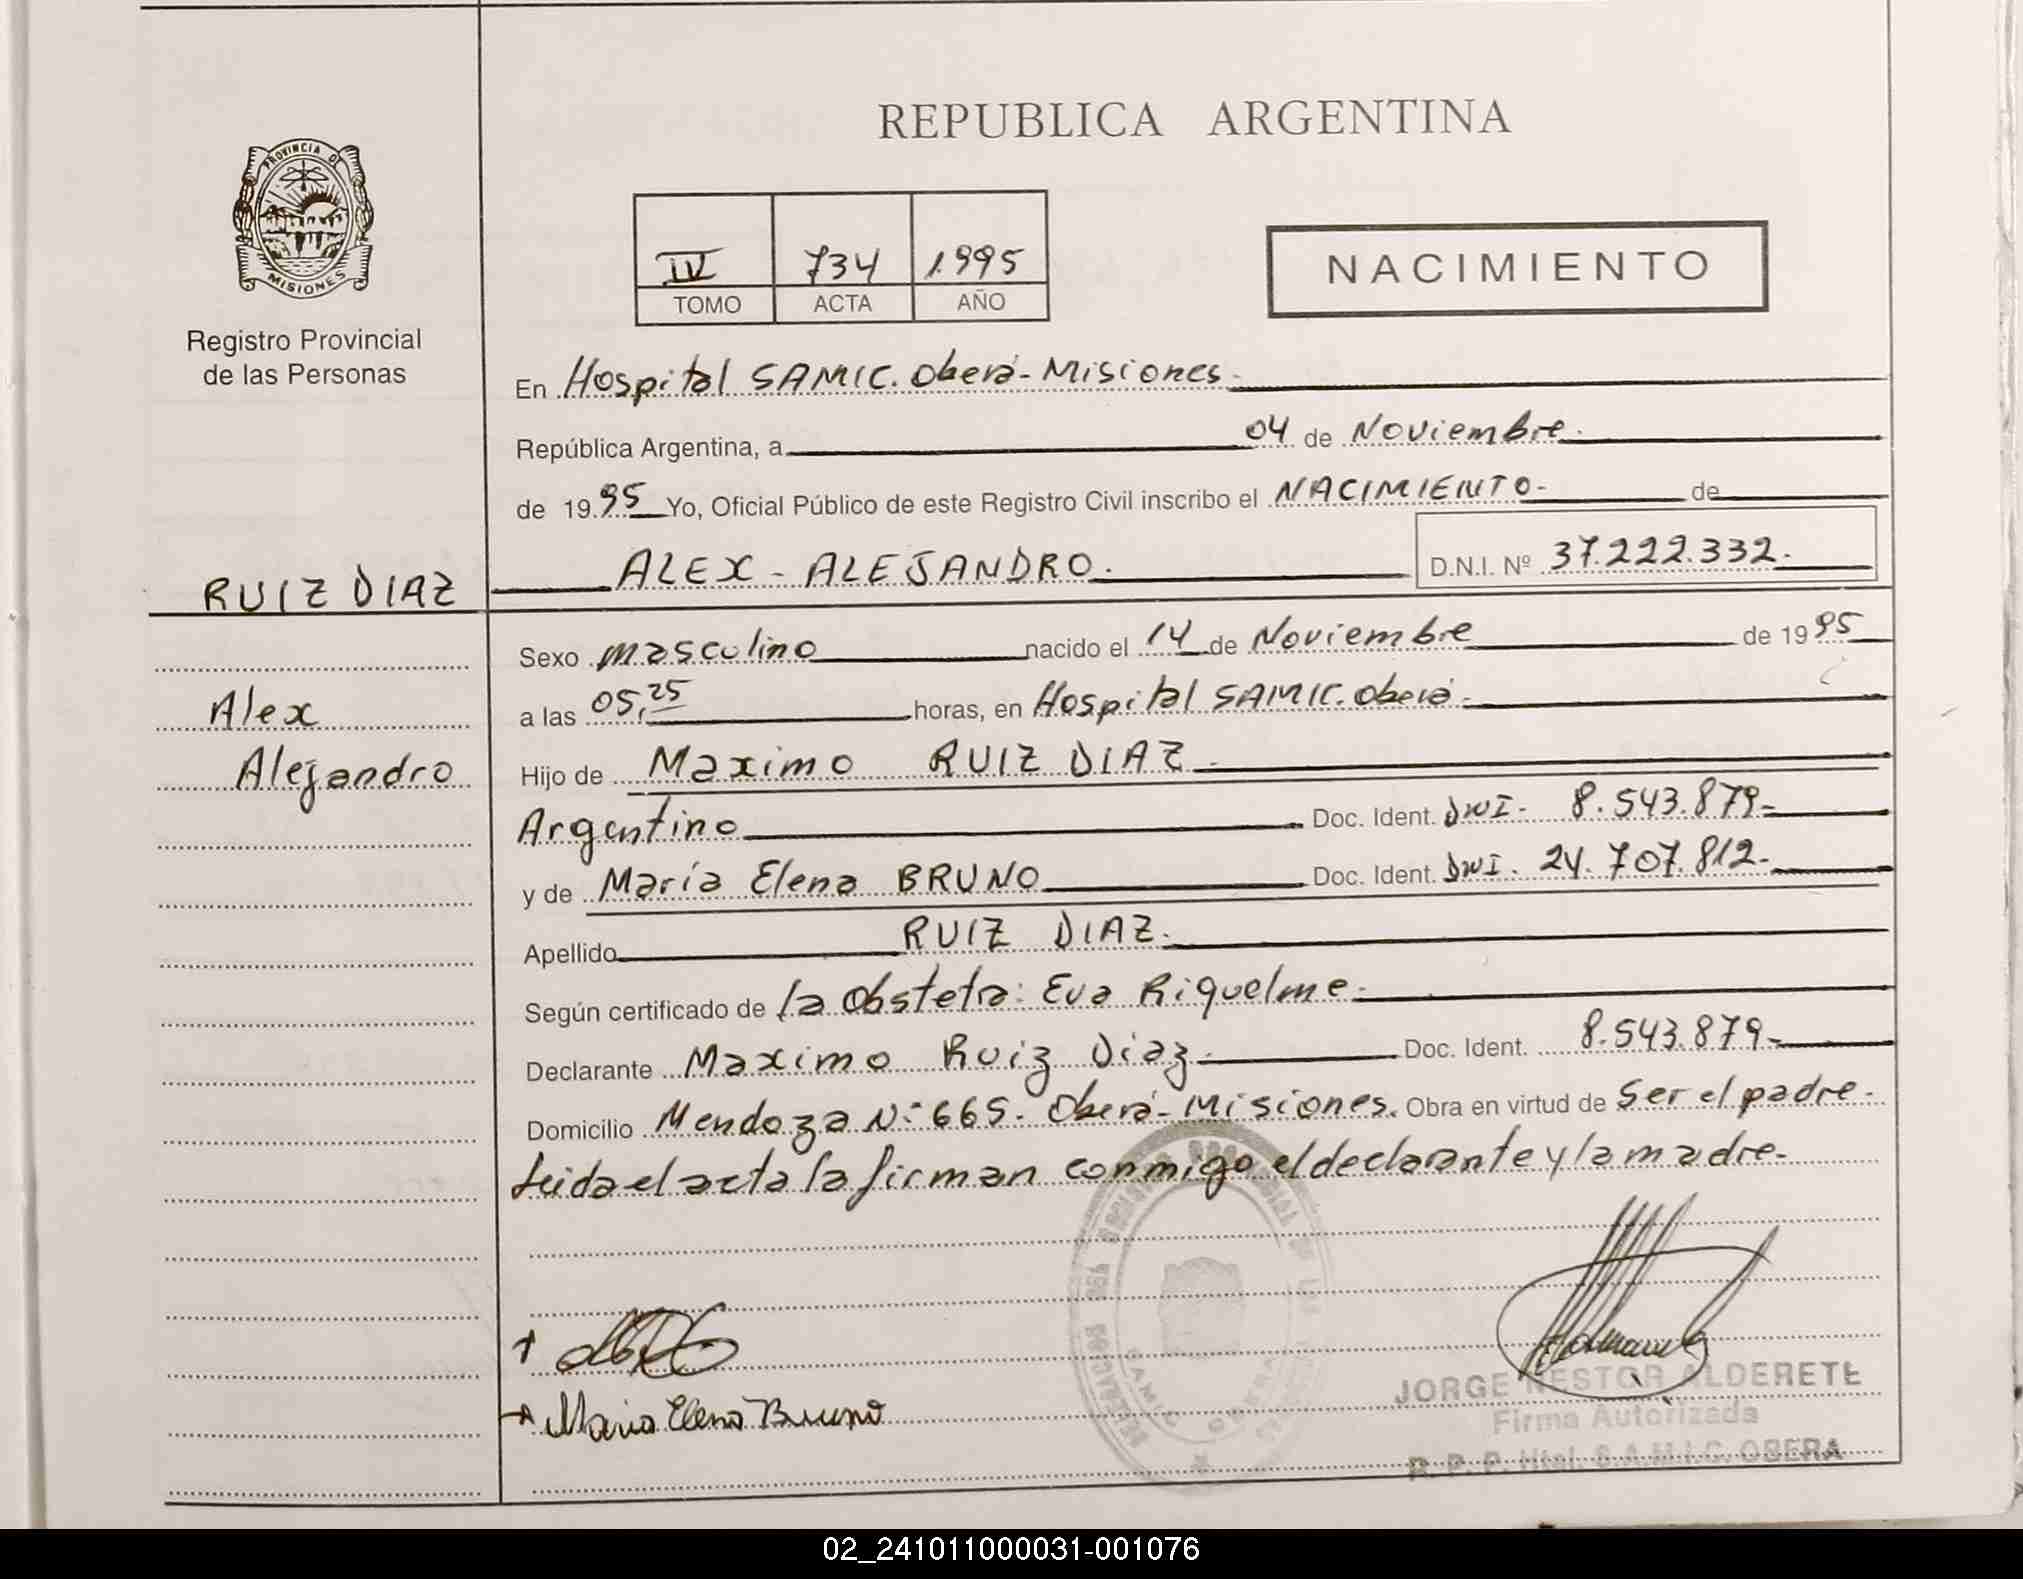 REPUBLICA ARGENTINA
PROVINCIA DE
MISIONES
Registro Provincial
de las Personas
IV 734 1.995
TOMO ACTA AÑO
NACIMIENTO
En Hospital SAMIC. Oberá - Misiones.
República Argentina, a 04 de Noviembre.
de 19.95 Yo, Oficial Público de este Registro Civil inscribo el NACIMIENTO- de
RUIZ DIAZ
ALEX - ALEJANDRO. D.N.I. Nº 37.222.332.
Sexo masculino nacido el 14 de Noviembre de 1995
Alex
a las 05,25 horas, en Hospital SAMIC. Oberá.
Alejandro
Hijo de Maximo RUIZ DIAZ.
Argentino Doc. Ident. DNI- 8.543.879-
y de María Elena BRUNO Doc. Ident. DNI. 24.707.812-
Apellido RUIZ DIAZ.
Según certificado de la Obstetra: Eva Riquelme.
Declarante Maximo Ruiz Diaz Doc. Ident. 8.543.879-
Domicilio Mendoza Nº 665. Oberá - Misiones. Obra en virtud de Ser el padre.
Leida el acta la firman conmigo el declarante y la madre.
Maria Elena Bruno
SAMIC OBERA
JORGE NESTOR ALDERETE
Firma Autorizada
R. P. P. Htal. S.A.M.I.C. OBERA
02_241011000031-001076